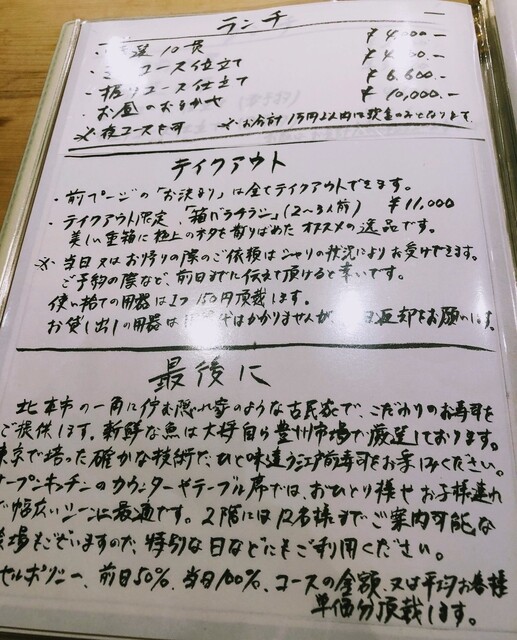 ランチ
選10貫 ¥4,000.-
コース仕立て
・握りコース仕立て ¥6,600.-
・お昼のおまかせ ¥10,000.-
※夜コースも可 ※お会計1万円以内は現金のみとなります。
テイクアウト
・前ページの「お決まり」は全てテイクアウトできます。
・テイクアウト限定、「箱バラチラシ」(2〜3人前) ¥11,000
美しい重箱に極上のネタを散りばめたオススメの逸品です。
※当日又はお帰りの際のご依頼はシャリの状況によりお受けできます。
ご予約の際など、前日までに伝えて頂けると幸いです。
使い捨ての用器は1つ150円頂戴します。
お貸し出しの用器は代はかかりませんが、日返却をお願いします。
最後に
北本市の一角に佇む隠れ家のような古民家で、こだわりのお寿司を
ご提供します。新鮮な魚は大将自ら豊州市場で厳選しております。
東京で培った確かな技術で、ひと味違う江戸前寿司をお楽しみください。
ープンキッチンのカウンターやテーブル席では、おひとり様やお子様連れ
で幅広いシーンに最適です。2階には12名様までご案内可能な
場もございますので、特別な日などにもご利用ください。
ャンセルポリシー、前日50%、当日100%、コースの金額、又は平均お客様
単価分頂戴します。